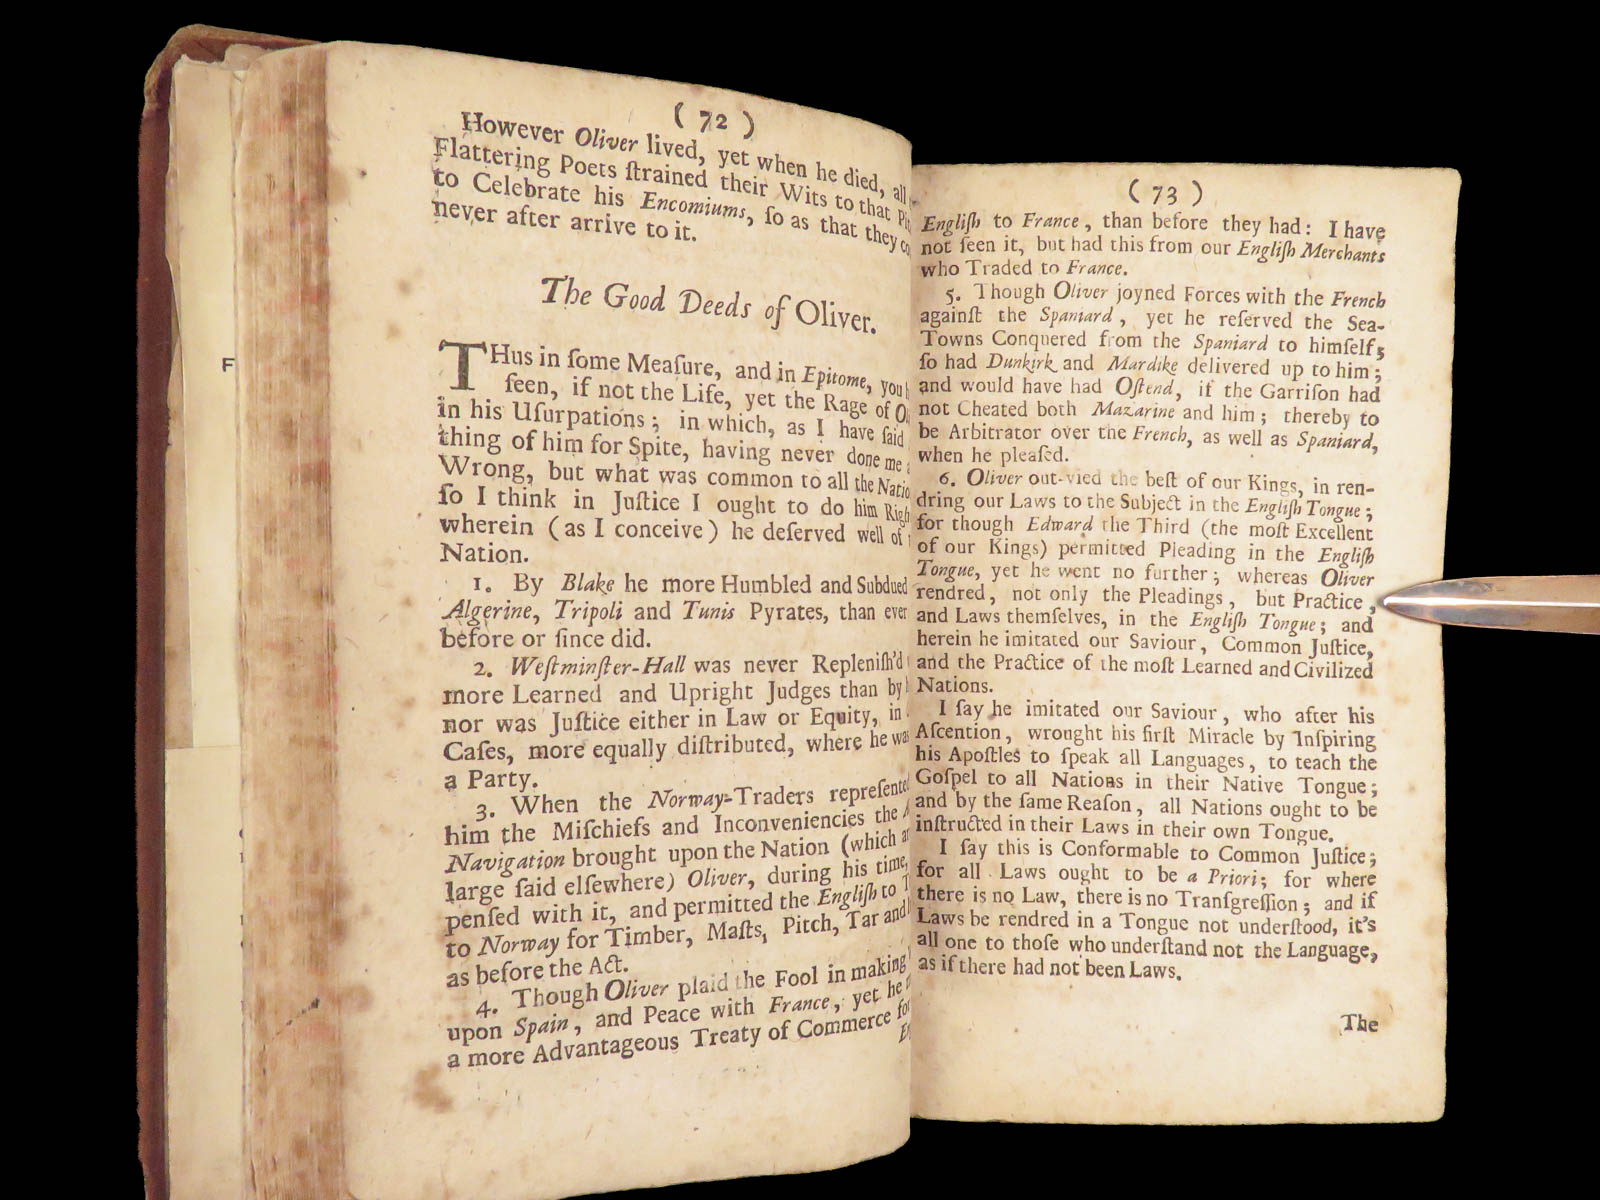 F
( 72 )
However Oliver lived, yet when he died, all
Flattering Poets ſtrained their Wits to that
to Celebrate his Encomiums, ſo as that they
never after arrive to it.
The Good Deeds of Oliver.
THus in ſome Meaſure, and in Epitome, you
ſeen, if not the Life, yet the Rage of
in his Uſurpations; in which, as I have ſaid
thing of him for Spite, having never done me
Wrong, but what was common to all the
ſo I think in Juſtice I ought to do him
wherein (as I conceive) he deſerved well of
Nation.
1. By Blake he more Humbled and Subdued
Algerine, Tripoli and Tunis Pyrates, than ever
before or ſince did.
2. Weſtminſter-Hall was never Repleniſh'd
more Learned and Upright Judges than by
nor was Juſtice either in Law or Equity, in
Caſes, more equally diſtributed, where he was
a Party.
3. When the Norway-Traders repreſented
him the Miſchiefs and Inconveniencies the
Navigation brought upon the Nation (which
large ſaid elſewhere) Oliver, during his time,
penſed with it, and permitted the Engliſh to
to Norway for Timber, Maſts, Pitch, Tar and
as before the Act.
4. Though Oliver plaid the Fool in making
upon Spain, and Peace with France, yet he
a more Advantageous Treaty of Commerce for
( 73 )
Engliſh to France, than before they had: I have
not ſeen it, but had this from our Engliſh Merchants
who Traded to France.
5. Though Oliver joyned Forces with the French
againſt the Spaniard, yet he reſerved the Sea-
Towns Conquered from the Spaniard to himſelf;
ſo had Dunkirk and Mardike delivered up to him;
and would have had Oſtend, if the Garriſon had
not Cheated both Mazarine and him; thereby to
be Arbitrator over the French, as well as Spaniard,
when he pleaſed.
6. Oliver out-vied the beſt of our Kings, in ren-
dring our Laws to the Subject in the Engliſh Tongue;
for though Edward the Third (the moſt Excellent
of our Kings) permitted Pleading in the Engliſh
Tongue, yet he went no further; whereas Oliver
rendred, not only the Pleadings, but Practice,
and Laws themſelves, in the Engliſh Tongue; and
herein he imitated our Saviour, Common Juſtice,
and the Practice of the moſt Learned and Civilized
Nations.
I ſay he imitated our Saviour, who after his
Aſcention, wrought his firſt Miracle by Inſpiring
his Apoſtles to ſpeak all Languages, to teach the
Goſpel to all Nations in their Native Tongue;
and by the ſame Reaſon, all Nations ought to be
inſtructed in their Laws in their own Tongue.
I ſay this is Conformable to Common Juſtice;
for all Laws ought to be a Priori; for where
there is no Law, there is no Tranſgreſſion; and if
Laws be rendred in a Tongue not underſtood, it's
all one to thoſe who underſtand not the Language,
as if there had not been Laws.
The